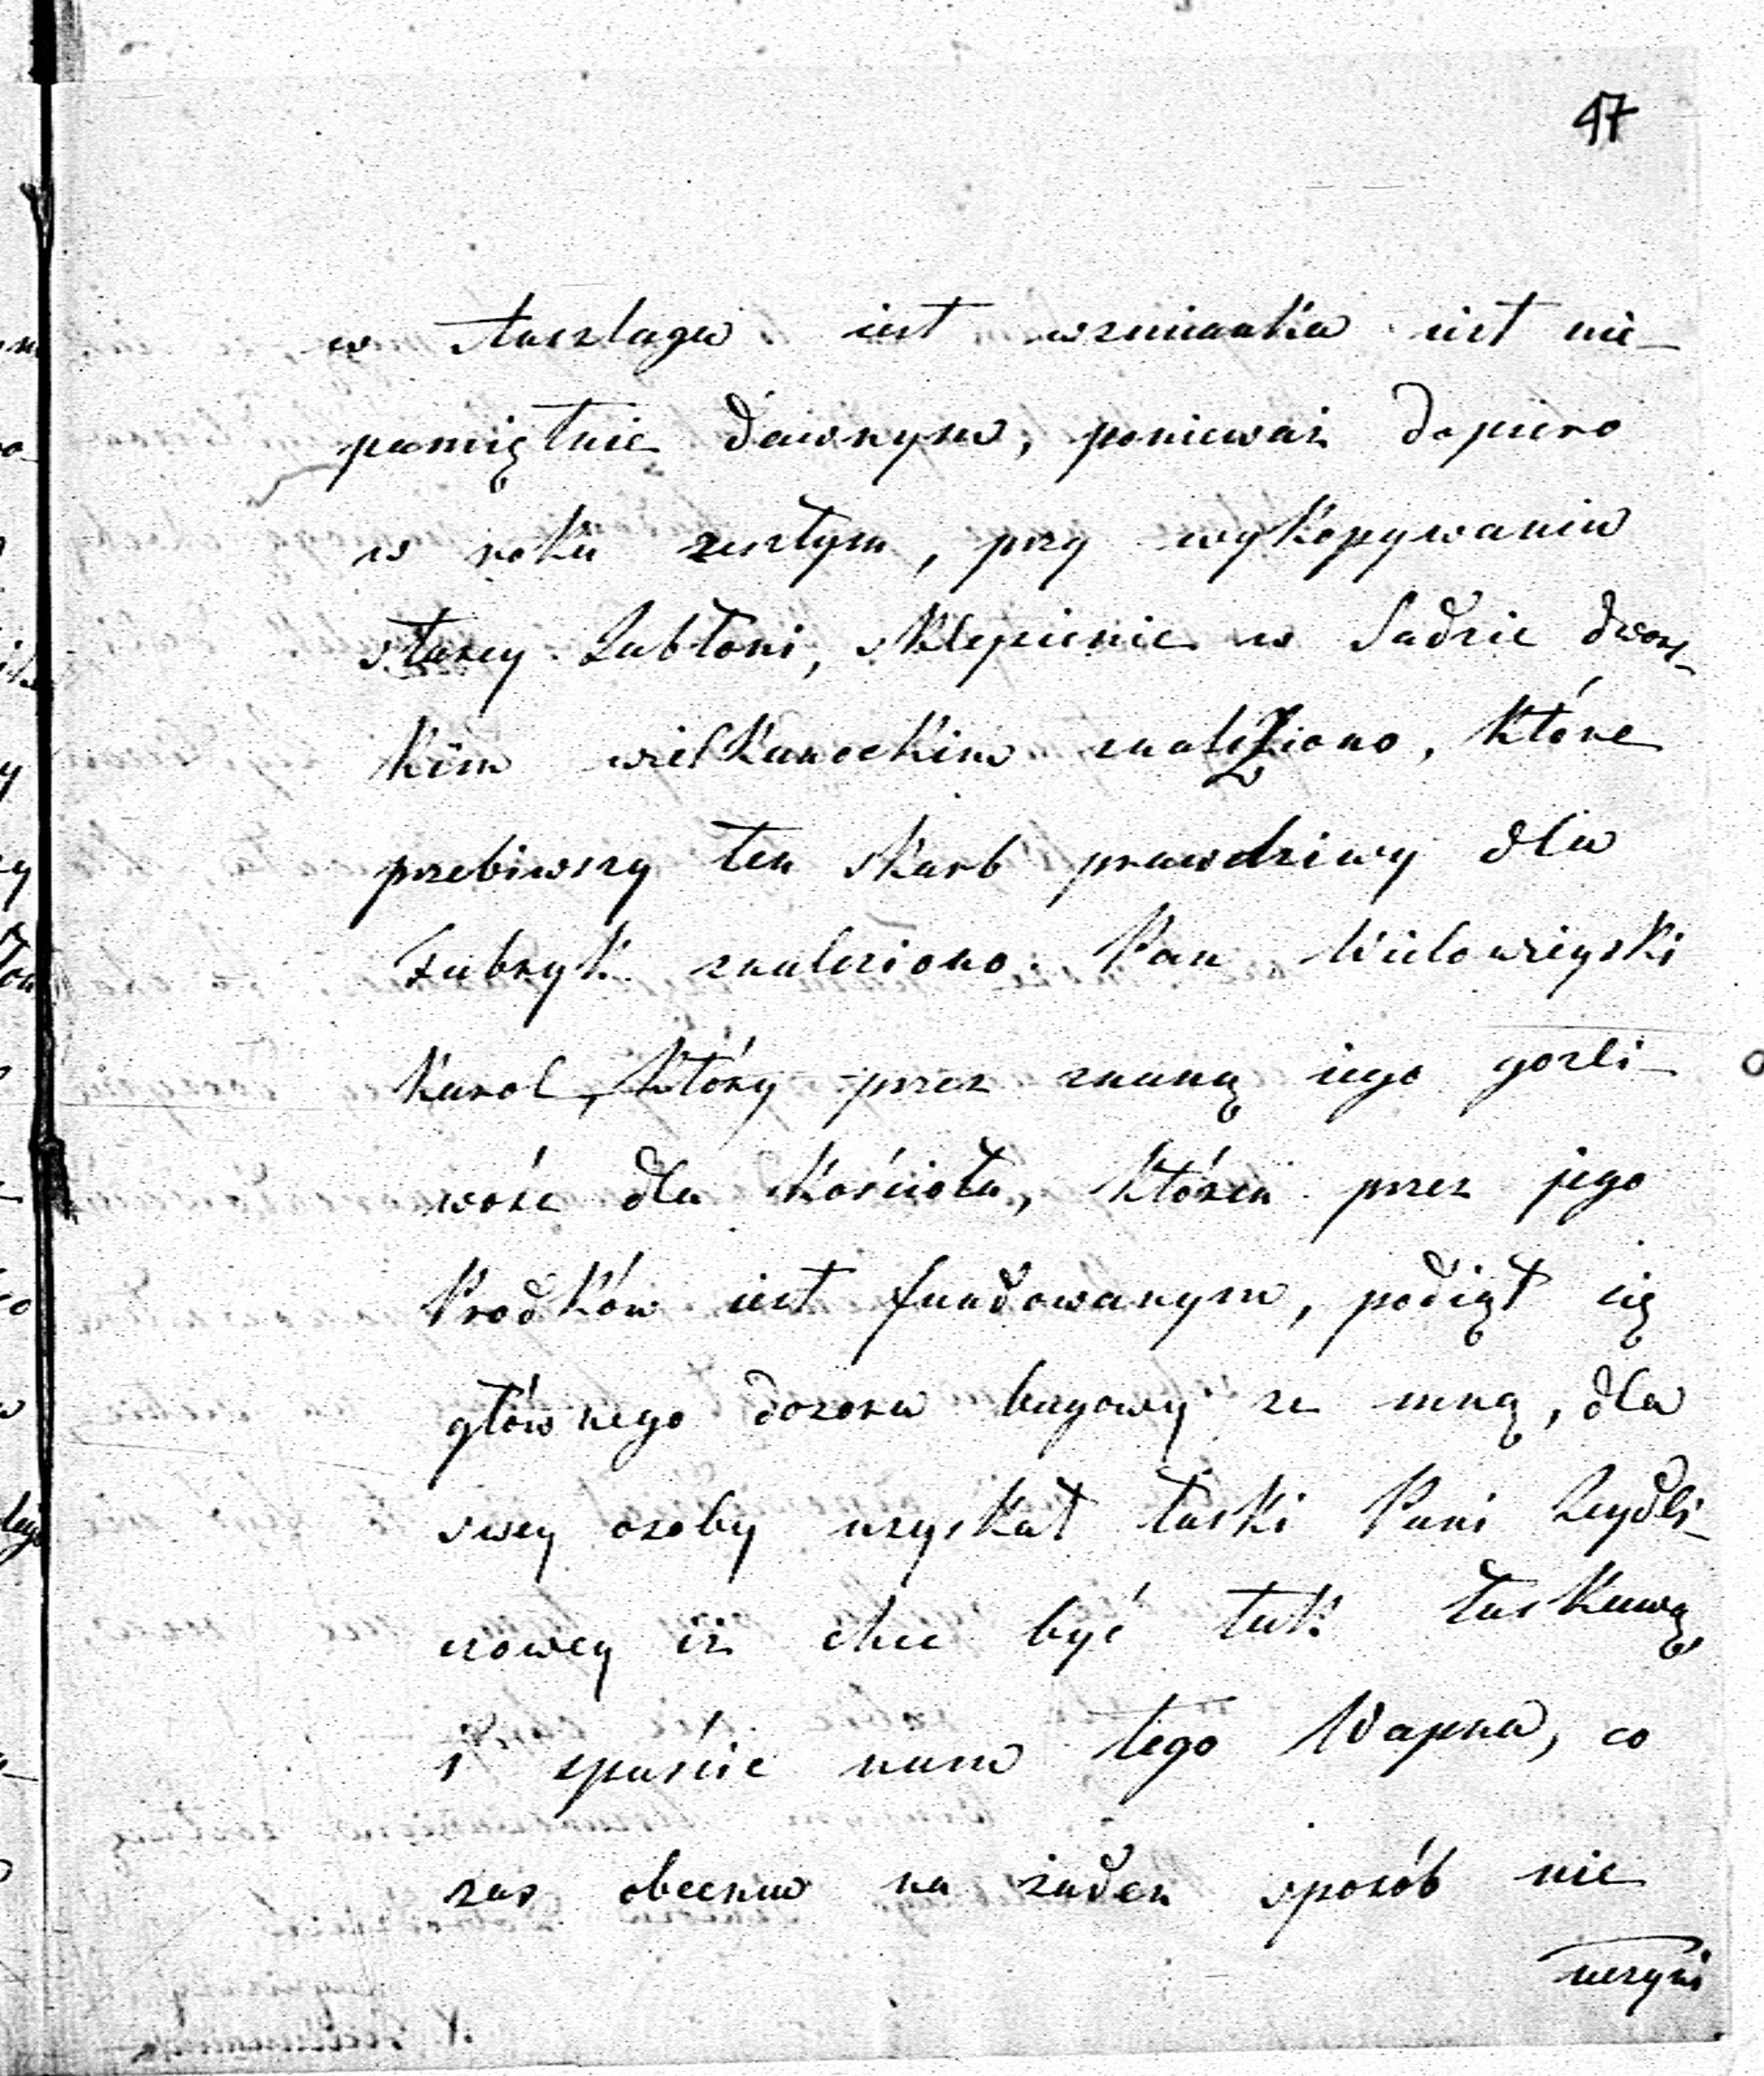 47
w Auszlagu iest wzmianka iest nie-
pamiętnie dawnym, ponieważ dopiero
w roku zeszłym, przy wykopywaniu
starey Jabłoni, sklepienie w Sadzie dwors-
kim wielkanockim znaleziono, które
przebiwszy ten skarb prawdziwy dla
Fabryk znaleziono. Pan Wielowieyski
Karol, który przez znaną iego gorli-
wość dla Kościoła, któren przez jego
Prodków iest fundowanym, podiął się
głównego dozoru ze mną, dla
swey osoby uzyskał łaski Pani Zeydli-
czowey iż chce być tak łaskawą
i spuście nam tego Wapna, co
zaś obecnie na żaden sposób nie
uczyni